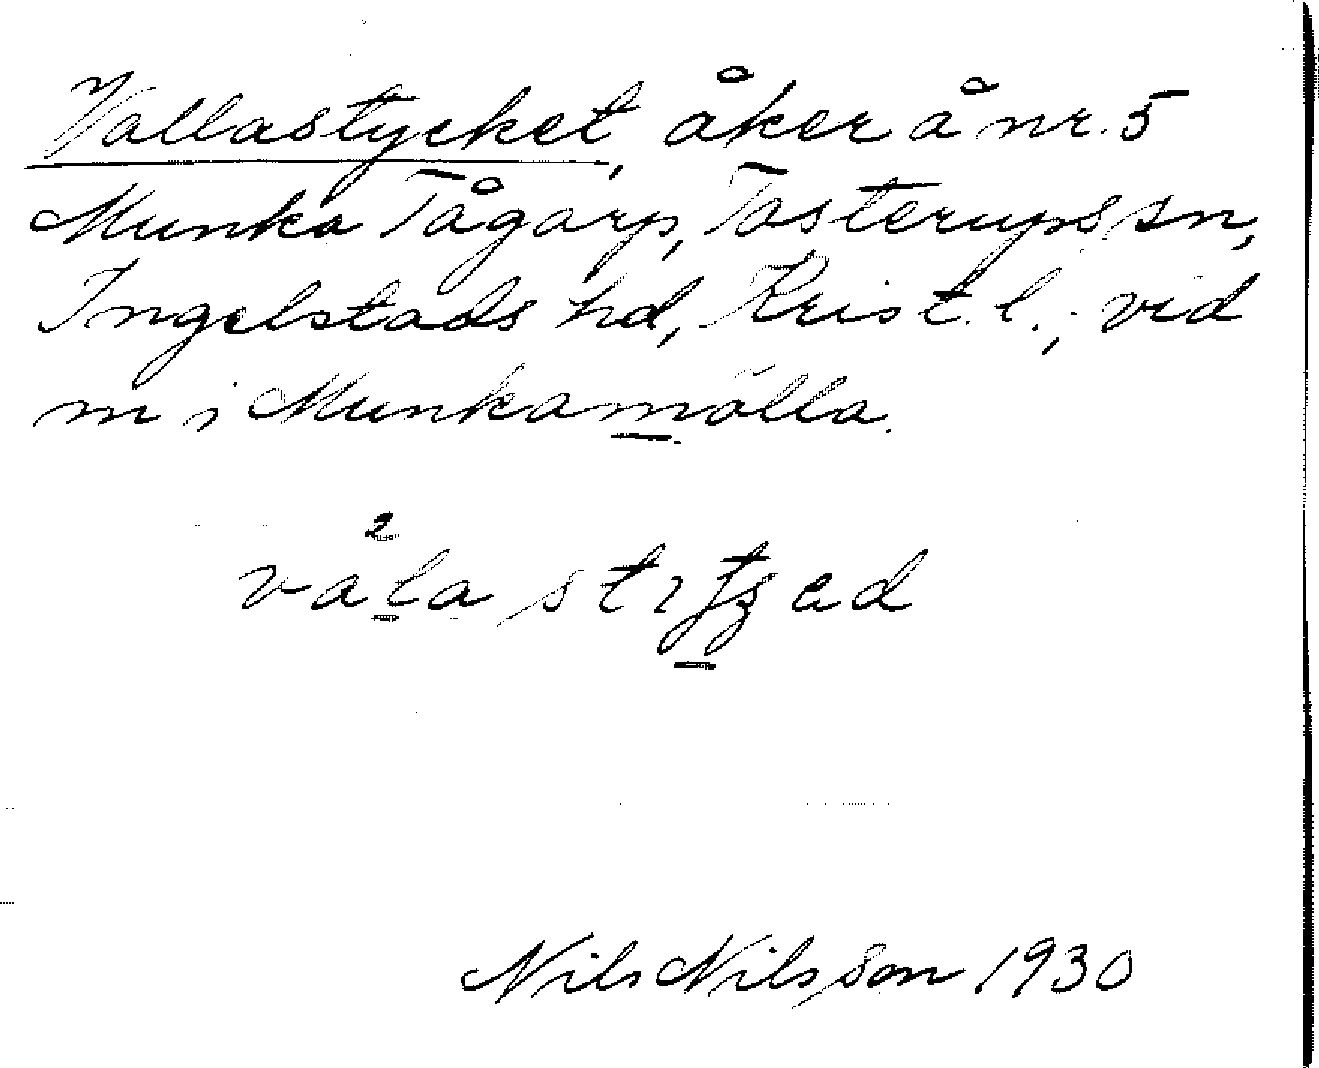 Vallastycket, åker å nr. 5
Munka Tågarp, Tosterups sn,
Ingelstads hd, Krist. l., vid
m i Munkamölla.
Nils Nilsson 1930